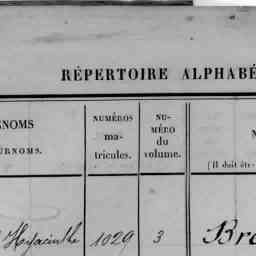 RÉPERTOIRE ALPHABÉ
GNOMS
URNOMS.
NUMÉROS
ma-
tricules.
NU-
MÉRO
du
volume.
N
(Il doit êtr
Hyacinthe 1029 3 Bro